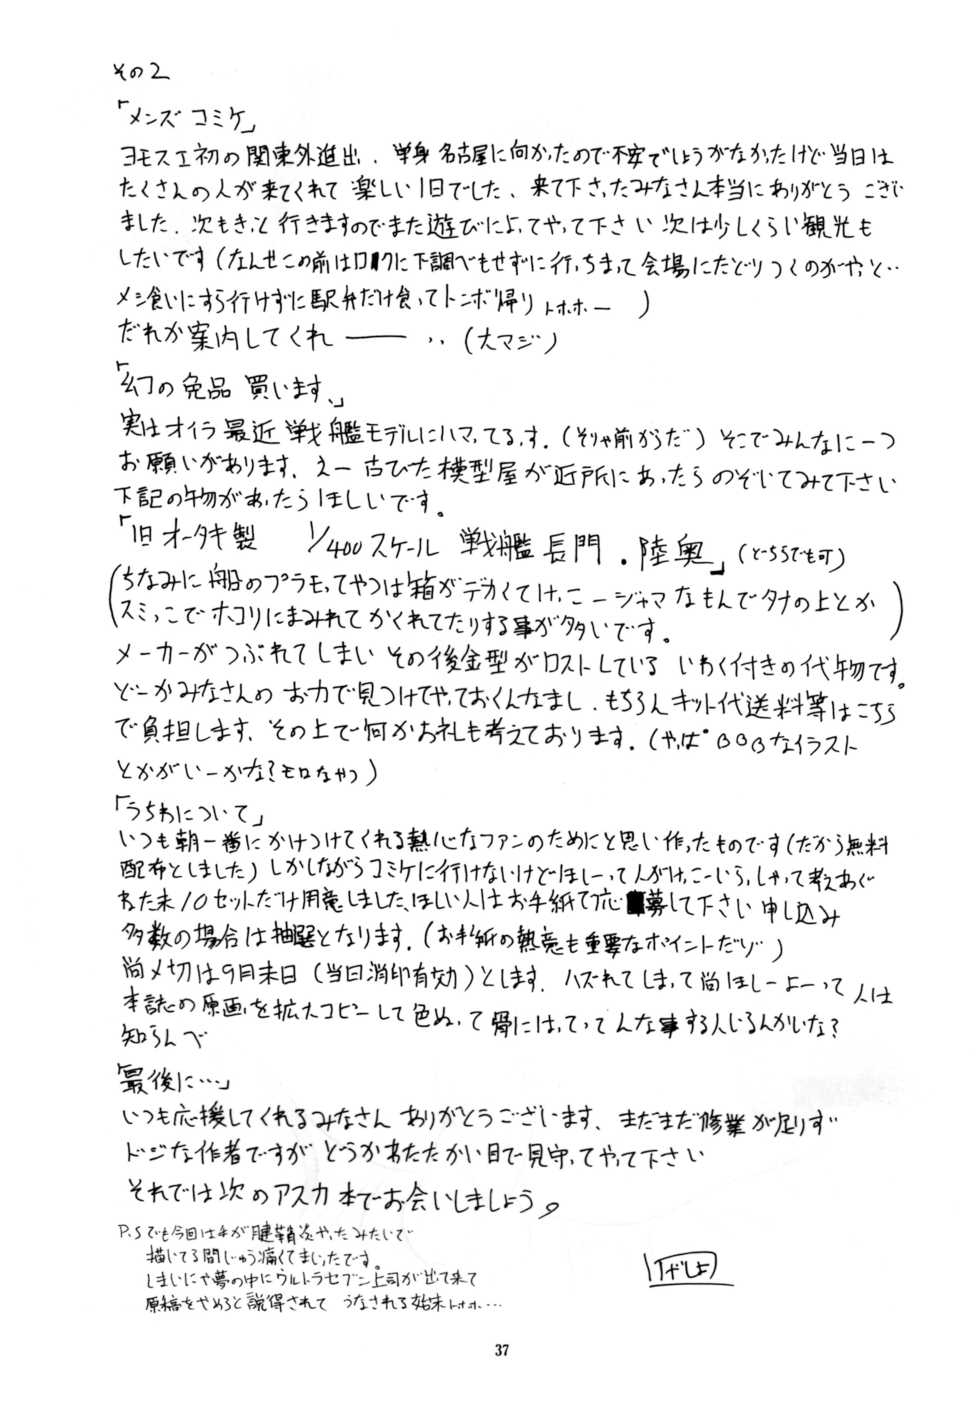 その2
「メンズコミケ」
ヨモスエ初の関東外進出、単身名古屋に向かったので不安でしょうがなかったけど当日は
たくさんの人が来てくれて楽しい1日でした、来て下さったみなさん本当にありがとうござい
ました、次もきっと行きますのでまた遊びによってやって下さい次は少しくらい観光も
したいです(なんせこの前はロクに下調べもせずに行っちまって会場にたどりつくのがやっと‥
メシ食いにすら行けずに駅弁だけ食ってトンボ帰りトホホー)
だれか案内してくれ――‥(大マジ)
「幻の免品買います、」
実はオイラ最近戦艦モデルにハマってるっす。(そりゃ前からだ)そこでみんなに一つ
お願いがあります、えー古びた模型屋が近所にあったらのぞいてみて下さい
下記の物があったらほしいです。
「旧オータキ製 1/400スケール 戦艦長門・陸奥」(どちらでも可)
(ちなみに船のプラモってやつは箱がデカくてけっこージャマなもんでタナの上とか
スミっこでホコリにまみれてかくれてたりする事が多いです。)
メーカーがつぶれてしまいその後金型がロストしているいわく付きの代物です。
どーかみなさんのお力で見つけてやっておくんなまし、もちろんキット代送料等はこちら
で負担します、その上で何かお礼も考えております、(やっぱ なイラスト
とかがいーかな?モロなやつ)
「うちわについて」
いつも朝一番にかけつけてくれる熱心なファンのためにと思い作ったものです(だから無料
配布としました)しかしながらコミケに行けないけどほしーって人がけっこーいらっしゃって考えあぐ
ねた末10セットだけ用意しました、ほしい人はお手紙で応募して下さい申し込み
多数の場合は抽選となります、(お手紙の熱意も重要なポイントだゾ)
尚〆切は9月末日(当日消印有効)とします、ハズれてしまって尚ほしーよーって人は
本誌の原画を拡大コピーして色ぬって骨にはってってんな事する人いるんかいな?
知らんべ
「最後に…」
いつも応援してくれるみなさんありがとうございます、まだまだ修業が足りず
ドジな作者ですがどうかあたたかい目で見守ってやって下さい
それでは次のアスカ本でお会いしましょう。
P.Sでも今回は手が腱鞘炎やったみたいで
描いてる間じゅう痛くてまいったです。
しまいにや夢の中にウルトラセブン上司が出て来て
原稿をやめろと説得されてうなされる始末トホホ…
37